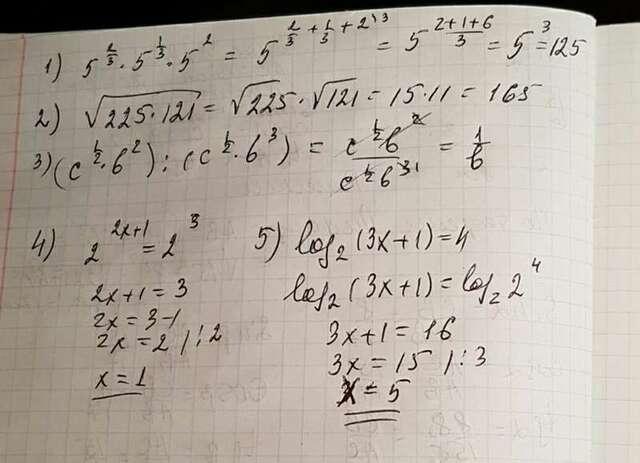 1) 5^(2/3) · 5^(1/3) · 5^2 = 5^(2/3 + 1/3 + 2\3) = 5^((2+1+6)/3) = 5^3 = 125
2) √(225·121) = √225 · √121 = 15·11 = 165
3) (c^(1/2) · b^2) : (c^(1/2) · b^3) = (c^(1/2) b^2)/(c^(1/2) b^(3 1)) = 1/b
4) 2^(2x+1) = 2^3
2x+1 = 3
2x = 3-1
2x = 2 | : 2
x = 1
5) log₂ (3x+1) = 4
log₂ (3x+1) = log₂ 2^4
3x+1 = 16
3x = 15 | : 3
x = 5